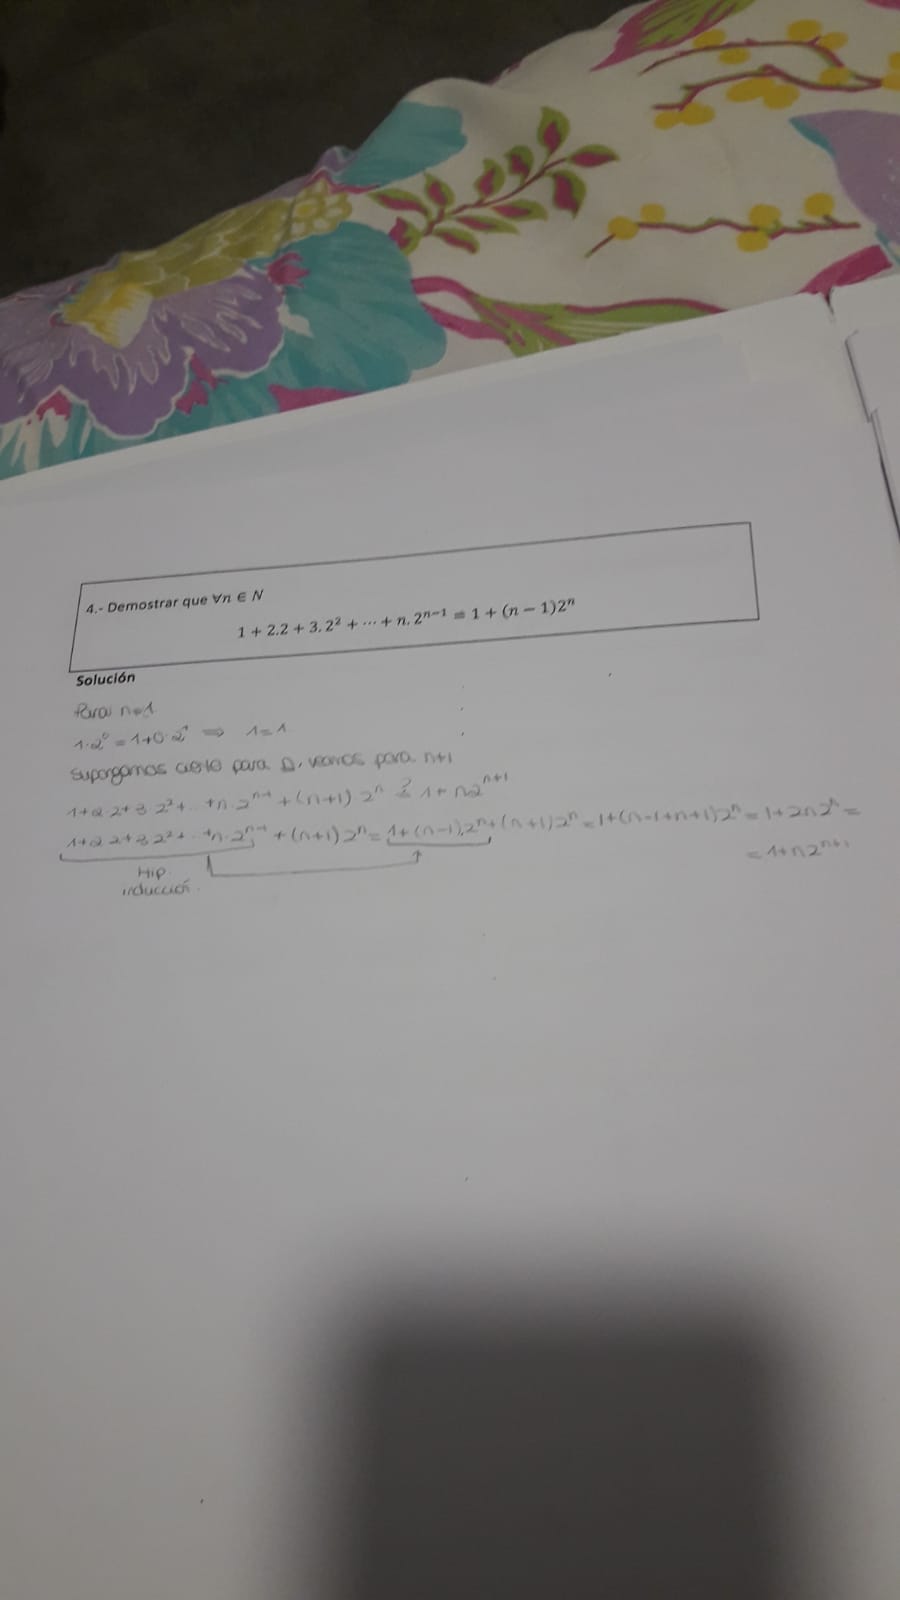 4.- Demostrar que ∀n ∈ N
1 + 2.2 + 3. 2² + ⋯ + n. 2ⁿ⁻¹ = 1 + (n − 1)2ⁿ
Solución
Para n=1
1·2⁰ = 1+0·2¹ ⇒ 1=1
Supongamos cierto para n, veamos para n+1
1+2·2+3·2²+...+n·2ⁿ⁻¹ + (n+1) 2ⁿ ≟ 1+ n2ⁿ⁺¹
1+2·2+3·2²+...+n·2ⁿ⁻¹ + (n+1) 2ⁿ = 1+(n-1)·2ⁿ+(n+1)2ⁿ = 1+(n-1+n+1)2ⁿ = 1+2n2ⁿ =
= 1+n2ⁿ⁺¹
Hip.
inducción.